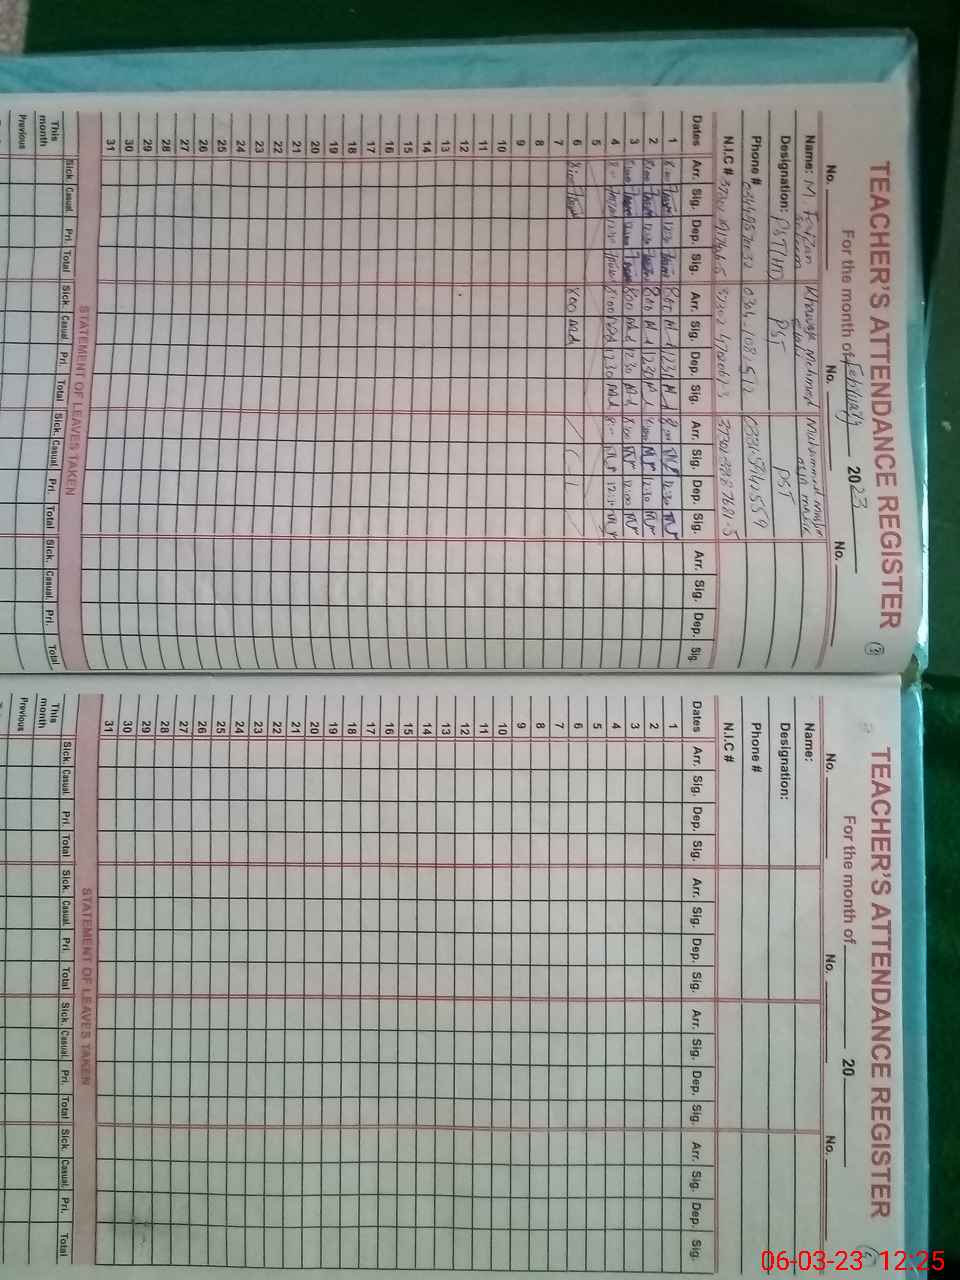 TEACHER'S ATTENDANCE REGISTER
For the month of February 2023
No. No. No.
Name: M. Faizan Khawaja Mehmood Muhammad
Designation: PST(HT) PST PST
Phone #
N.I.C #
Dates Arr. Sig. Dep. Sig. Arr. Sig. Dep. Sig. Arr. Sig. Dep. Sig. Arr. Sig. Dep. Sig.
1 8:00 12:30 800 1230 8:00 12:30
2 8:00 12:30 800 1230 8:00 12:30
3 8:00 12:00 800 1230 8:00 12:00
4 8:00 12:30 800 1230 8:00 12:30
5
6 8:00 800
7
8
9
10
11
12
13
14
15
16
17
18
19
20
21
22
23
24
25
26
27
28
29
30
31
STATEMENT OF LEAVES TAKEN
Sick. Casual. Pri. Total Sick. Casual. Pri. Total Sick. Casual. Pri. Total Sick. Casual. Pri. Total
This month
Previous
TEACHER'S ATTENDANCE REGISTER
For the month of 20
No. No. No.
Name:
Designation:
Phone #
N.I.C #
Dates Arr. Sig. Dep. Sig. Arr. Sig. Dep. Sig. Arr. Sig. Dep. Sig. Arr. Sig. Dep. Sig.
1
2
3
4
5
6
7
8
9
10
11
12
13
14
15
16
17
18
19
20
21
22
23
24
25
26
27
28
29
30
31
STATEMENT OF LEAVES TAKEN
Sick. Casual. Pri. Total Sick. Casual. Pri. Total Sick. Casual. Pri. Total Sick. Casual. Pri. Total
This month
Previous
06-03-23 12:25